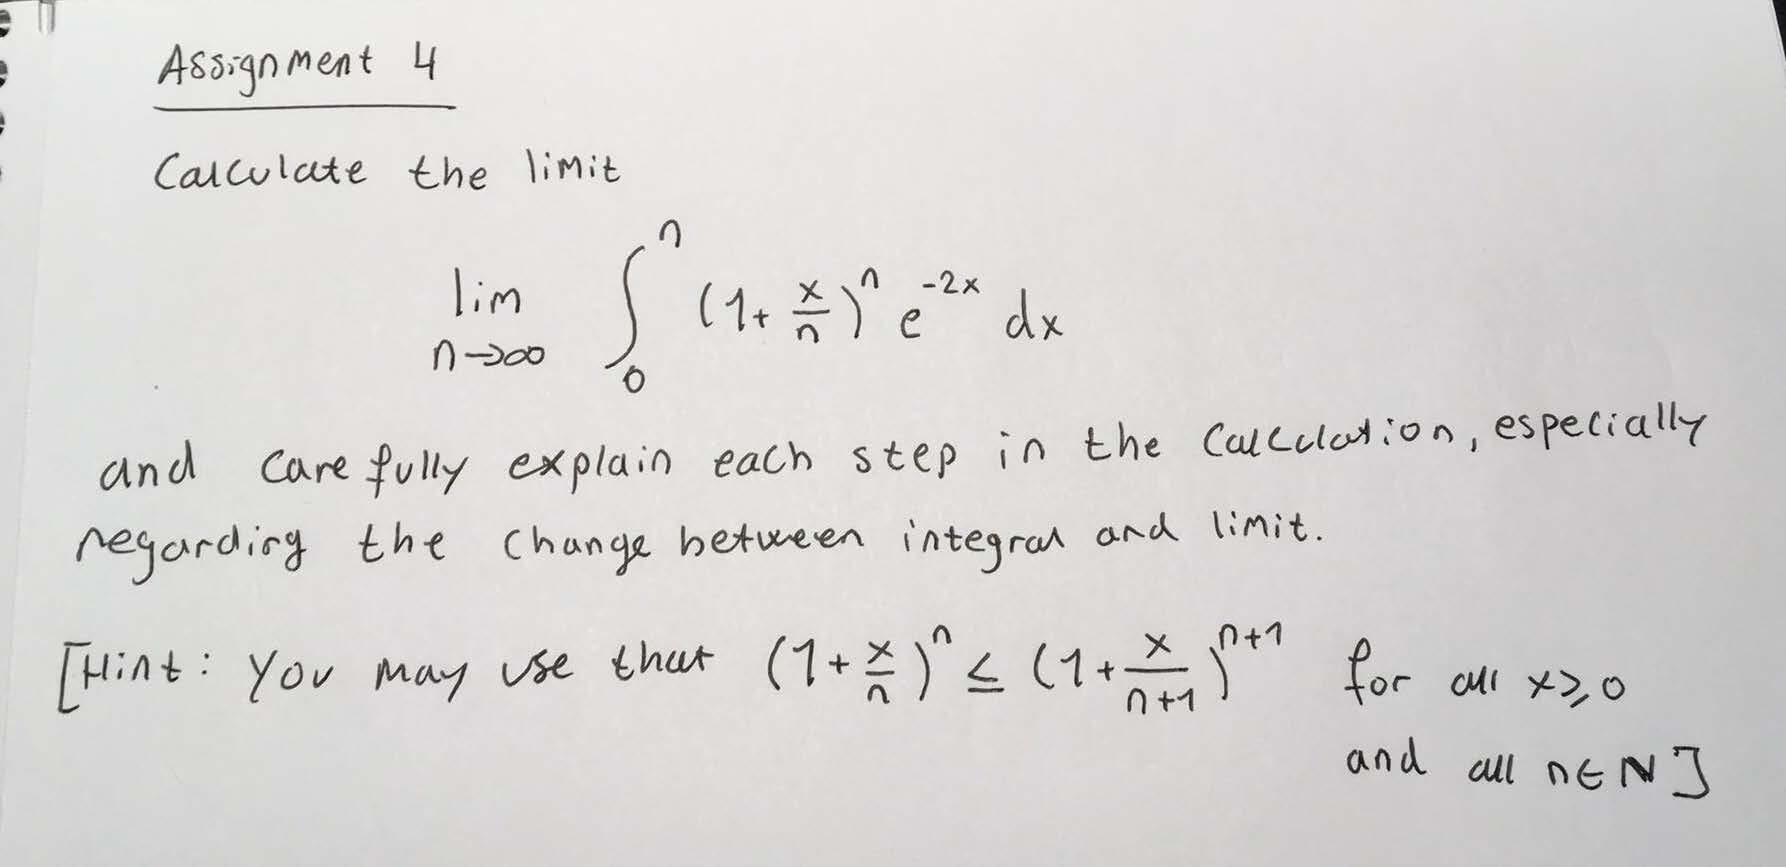 Assignment 4
Calculate the limit
lim n→∞ ∫₀ⁿ (1+ x/n)ⁿ e^(-2x) dx
and carefully explain each step in the calculation, especially
regarding the change between integral and limit.
[Hint: You may use that (1+ x/n)ⁿ ≤ (1+ x/(n+1))^(n+1) for all x≥0
and all n∈ℕ]